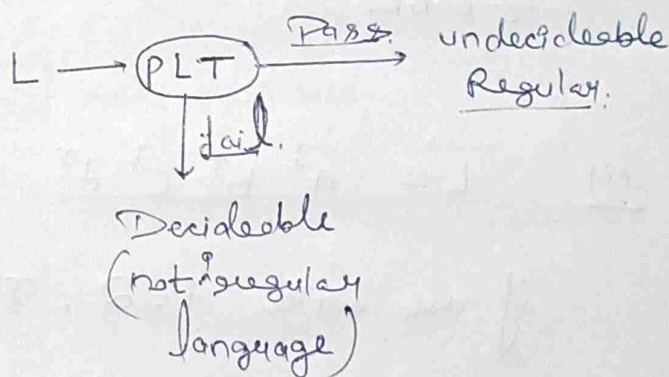 L → PLT Pass → undecideable
Regular.
fail.
Decideable
(not regular
language)